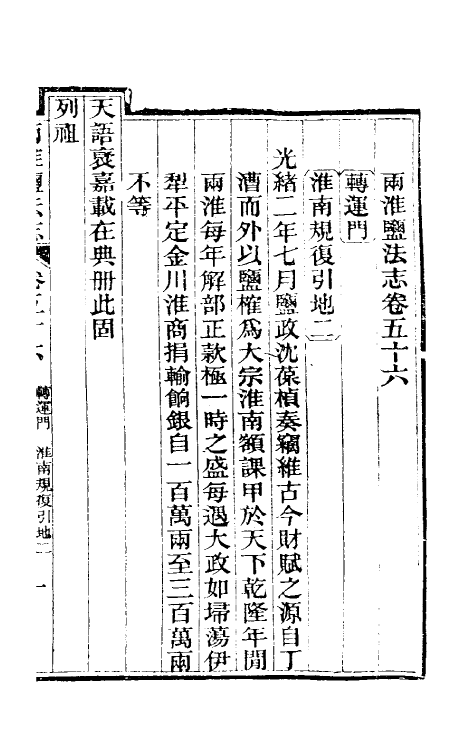 兩淮鹽法志卷五十六
轉運門
淮南規復引地二
光緒二年七月鹽政沈葆楨奏竊維古今財賦之源自丁
漕而外以鹽榷爲大宗淮南額課甲於天下乾隆年閒
兩淮每年解部正款極一時之盛每遇大政如埽蕩伊
犁平定金川淮商捐輸餉銀自一百萬兩至三百萬兩
不等
天語褒嘉載在典冊此固
列祖
兩淮鹽法志 卷五十六 轉運門 淮南規復引地二 一